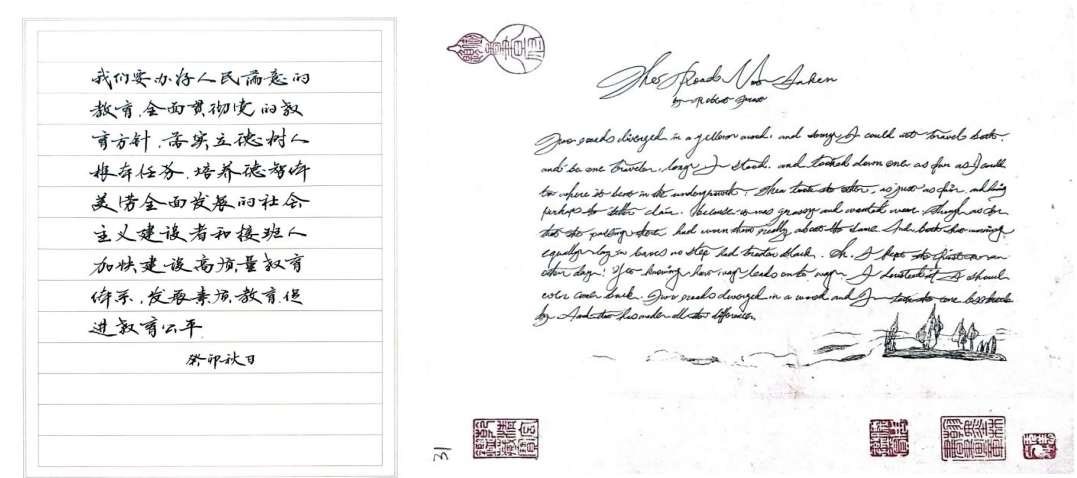 我们要办好人民满意的
教育,全面贯彻党的教
育方针,落实立德树人
根本任务,培养德智体
美劳全面发展的社会
主义建设者和接班人
加快建设高质量教育
体系,发展素质教育,促
进教育公平
癸卯秋日
Roads Not Taken
by Robert Frost
Two roads diverged in a yellow wood, and sorry I could not travel both.
and be one traveler, long I stood. and looked down one as far as I could
to where it bent in the undergrowth; Then took the other, as just as fair, and
perhaps the better claim. because it was grassy and wanted wear. Though as for
that the passing there had worn them really about the same And both morning
equally lay in leaves no step had trodden black. Oh, I kept the first for an
other day! Yet knowing how way leads onto way. I doubted if I should
ever come back. Two roads diverged in a wood and I took the one less
by And that has made all the difference.
31